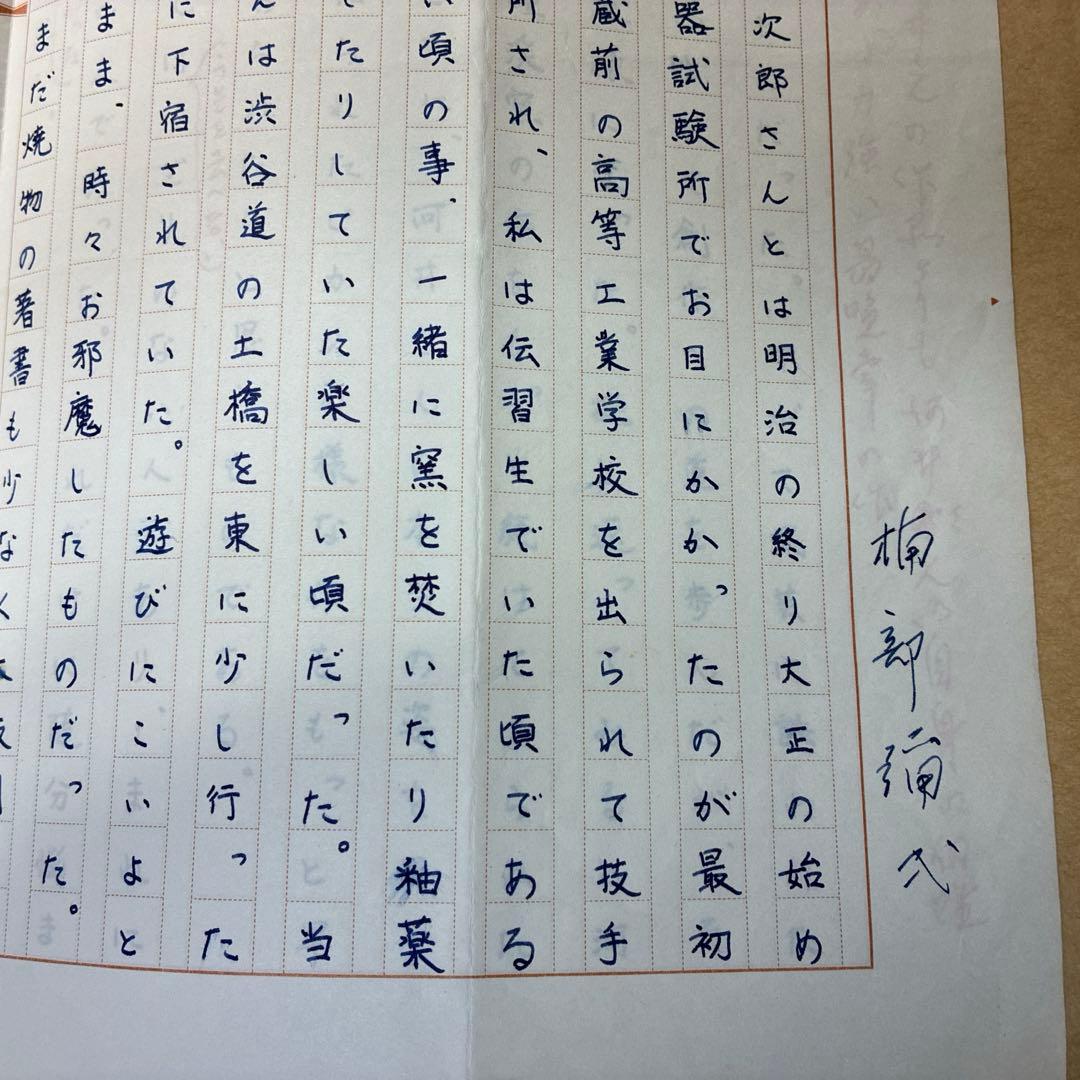 楠部彌弌
次郎さんとは明治の終り大正の始め
器試験所でお目にかかったのが最初
蔵前の高等工業学校を出られて技手
所され、私は伝習生でいた頃である
い頃の事、一緒に窯を焚いたり釉薬
したりしていた楽しい頃だった。当
んは渋谷道の土橋を東に少し行った
に下宿されていた。遊びにこいよと
まま、時々お邪魔したものだった。
まだ焼物の著書も少なく